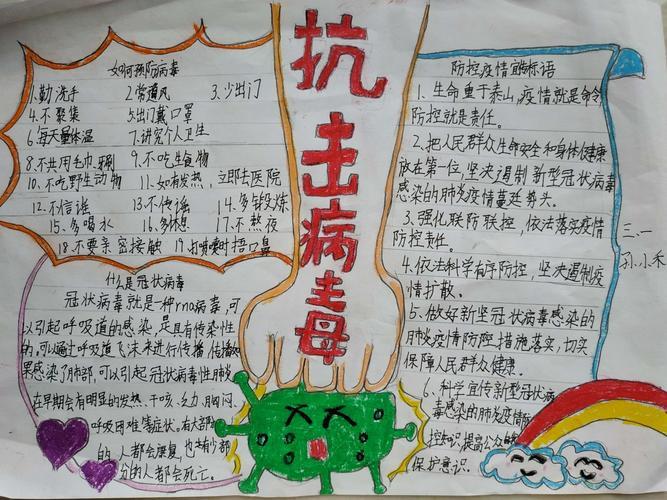 抗击病毒
如何预防病毒
1.勤洗手 2.常通风 3.少出门
4.不聚集 5.出门戴口罩
6.每天量体温 7.讲究个人卫生
8.不共用毛巾,牙刷 9.不吃生食物
10.不吃野生动物 11.如有发热,立即去医院
12.不信谣 13.不传谣 14.多锻炼
15.多喝水 16.多休息 17.不熬夜
18.不要亲密接触 19.打喷嚏时捂口鼻
什么是冠状病毒
冠状病毒就是一种rna病毒,可
以引起呼吸道的感染,是具有传染性
的,可以通过呼吸道飞沫来进行传播,传播
果感染了肺部,可以引起冠状病毒性肺炎
在早期会有明显的发热、干咳、乏力、胸闷、
呼吸困难等症状。有大部分
的人都会康复,也有少部
分的人都会死亡。
防控疫情宣标语
1、生命重于泰山,疫情就是命令,
防控就是责任。
2、把人民群众生命安全和身体健康
放在第一位,坚决遏制新型冠状病毒
感染的肺炎疫情蔓延势头。
3、强化联防联控,依法落实疫情
防控责任。
4、依法科学有序防控,坚决遏制疫
情扩散。
5、做好新型冠状病毒感染的
肺炎疫情防控措施落实,切实
保障人民群众健康。
6、科学宣传新型冠状病
毒感染的肺炎疫情防
控知识,提高公众
保护意识。
三、一
孙小禾